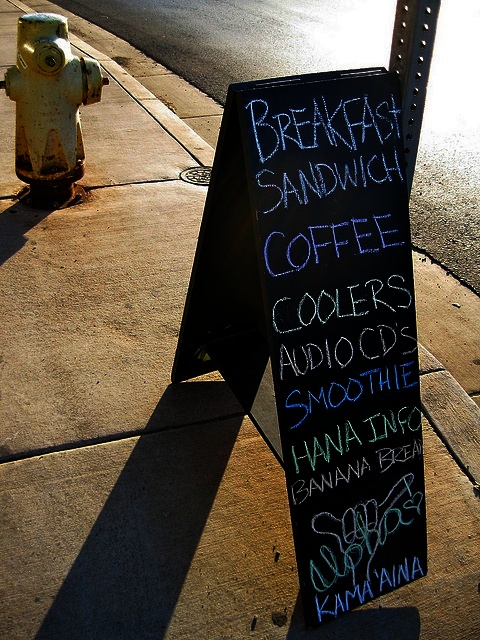 BREAKFAST
SANDWICH
COFFEE
COOLERS
AUDIO CD'S
SMOOTHIE
HANA INFO
BANANA BREA
Aloha
KAMA'AINA